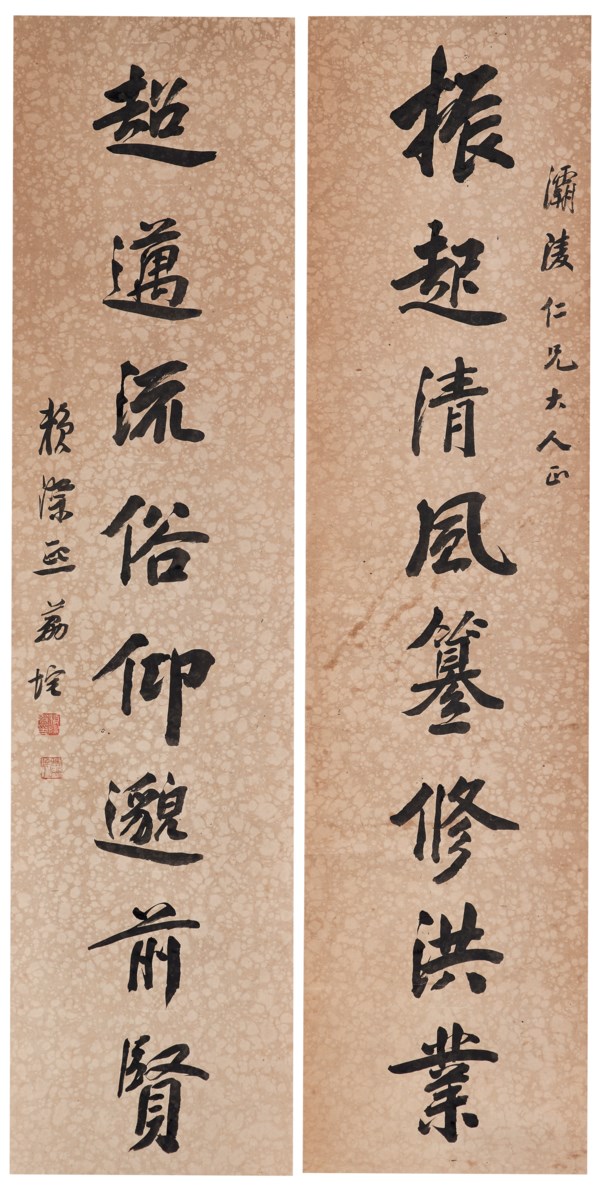 灞陵仁兄大人正
振起清風纂修洪業
超邁流俗仰邈前賢
賴際熙荔垞